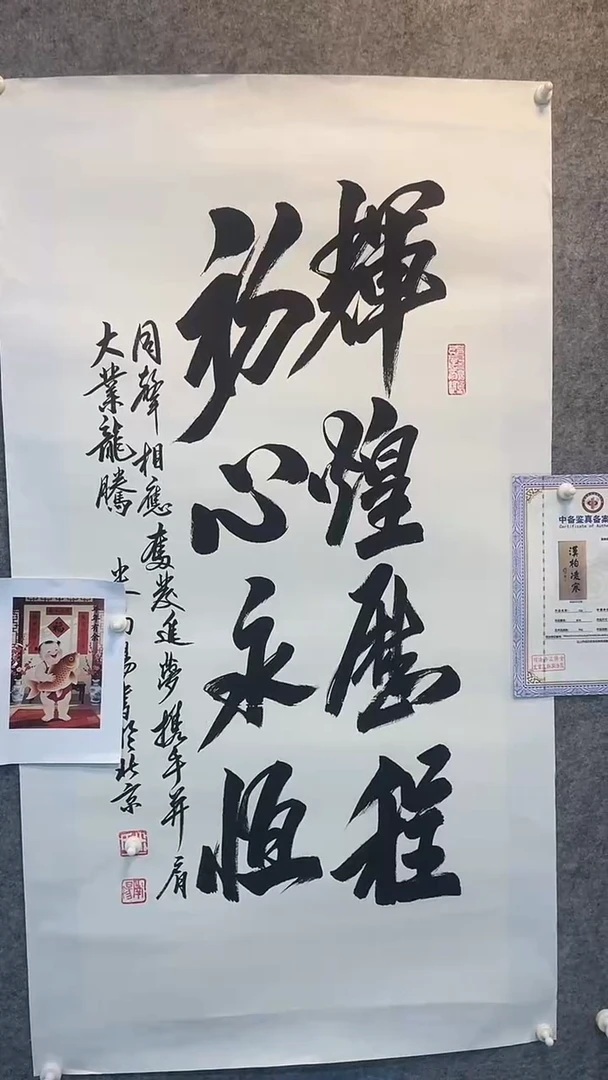 輝煌歷程
初心永恒
同聲相應奮發進夢攜手并肩
大業龍騰
书於北京
中备鉴真备案
Certificate of Auth
漢柏凌寒